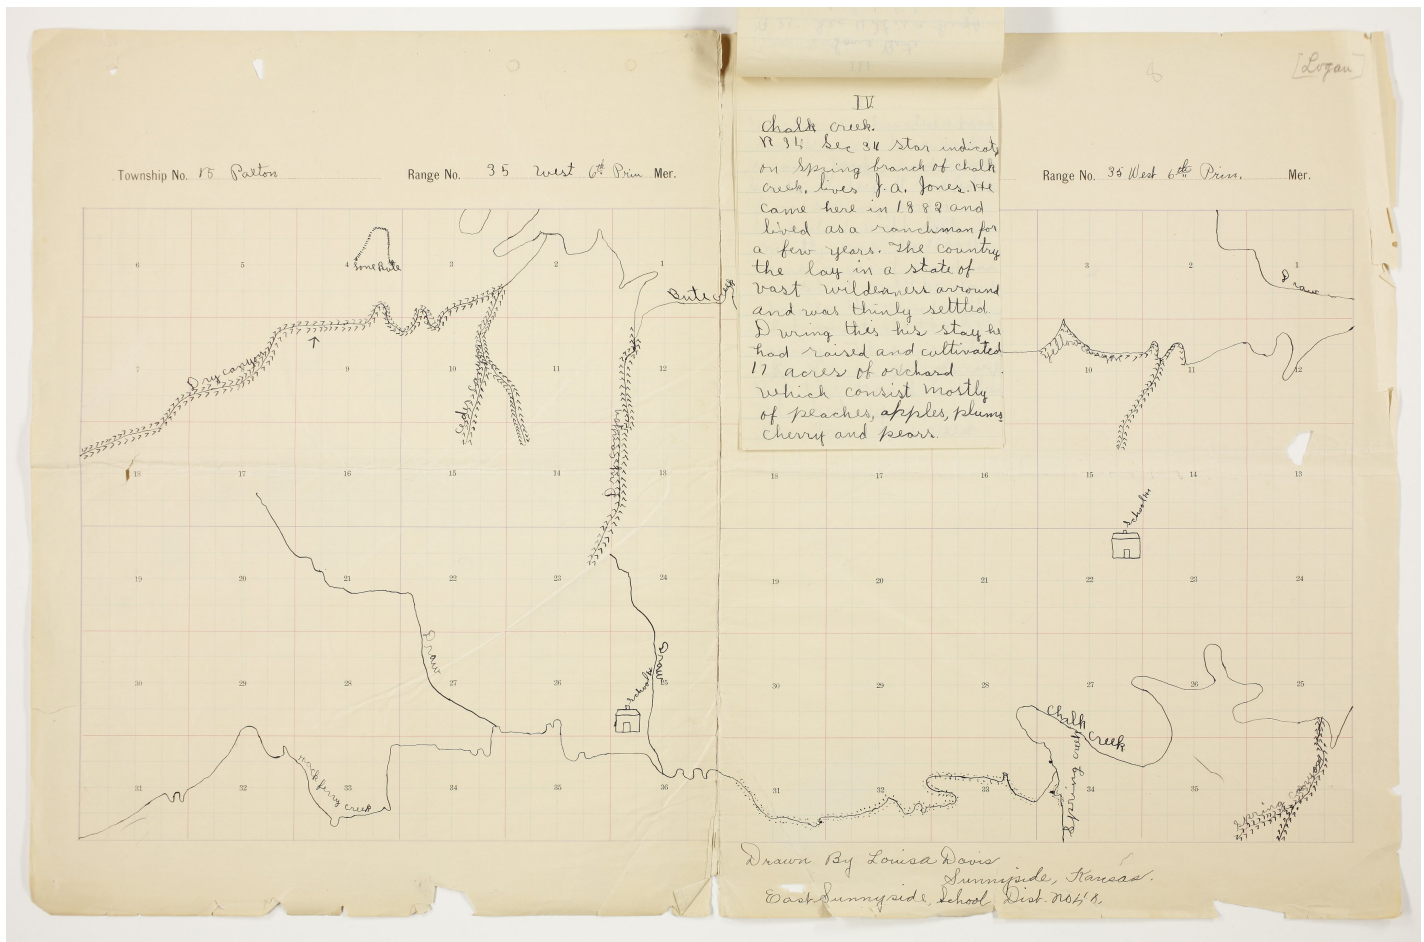 [Logan]
Township No. 15 Palton
Range No. 35 west 6th Prin Mer.
Range No. 35 West 6th Prin. Mer.
IV
Chalk creek.
Sec 34 star indicats
on Spring branch of chalk
creek. lives J.A. Jones. He
came here in 1882 and
lived as a ranchman for
a few years. The country
the lay in a state of
vast wilderness arround
and was thinly settled.
During this his stay he
had raised and cultivated
17 acres of orchard
which consist mostly
of peaches, apples, plums
cherry and pears.
6 5 4 3 2 1
Lone Bute
Bute Creek
7 9 10 11 12
Dry canyon
18 17 16 15 14 13
19 20 21 22 23 24
Draw
Draw
30 29 28 27 26 25
Schoolh
31 32 33 34 35 36
creek
3 2 1
Draw
10 11 12
Yellow
18 17 16 15 14 13
Schoolh
19 20 21 22 23 24
30 29 28 27 26 25
Chalk
Creek
31 32 33 34 35
Spring creek
Spring
Drawn By Louisa Davis
Sunnyside, Kansas.
East Sunnyside, School Dist.